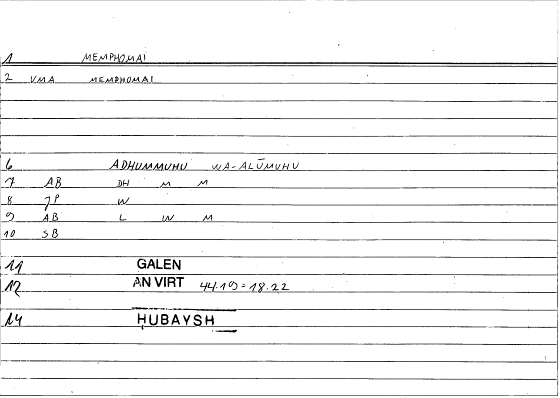 1 MEMPHOMAI
2 VMA MEMPHOMAI
6 ADHUMMUHU WA-ALŪMUHU
7 AB DH M M
8 JP W
9 AB L W M
10 SB
11 GALEN
12 AN VIRT 44.19 = 18.22
14 ḤUBAYSH